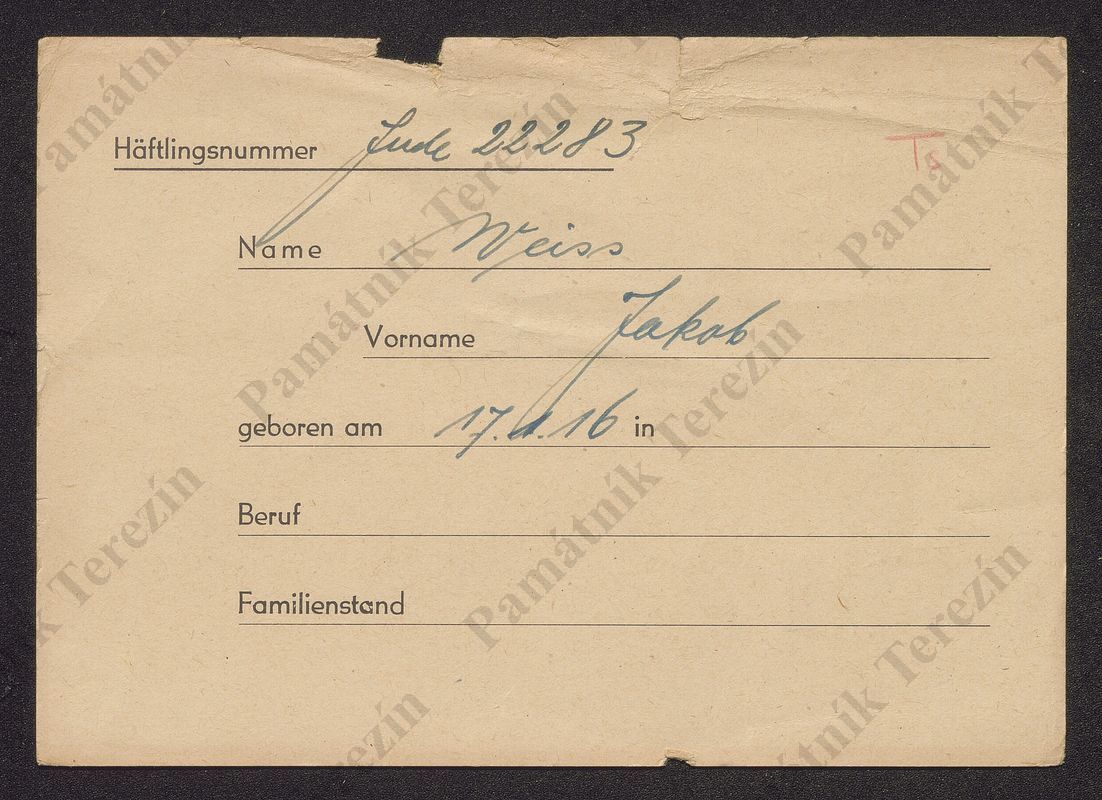 Häftlingsnummer Jude 22283
Ts
Name Weiss
Vorname Jakob
geboren am 17.1.16 in
Beruf
Familienstand
Památník Terezín